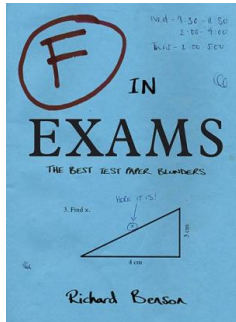 F
IN
EXAMS
THE BEST TEST PAPER BLUNDERS
HERE IT IS!
3. Find x.
x
3 cm
4 cm
Richard Benson